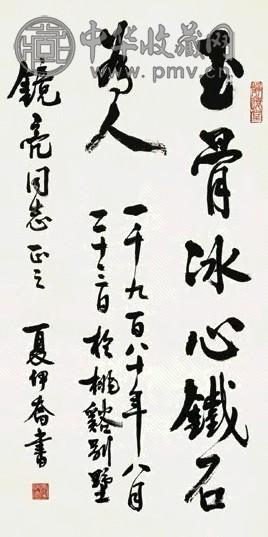 中华收藏网
www.pmv.cn
玉骨冰心鐵石
為人
一千九百八十年八月
二十三日於桃谿別墅
鏡亮同志正之 夏伊喬書